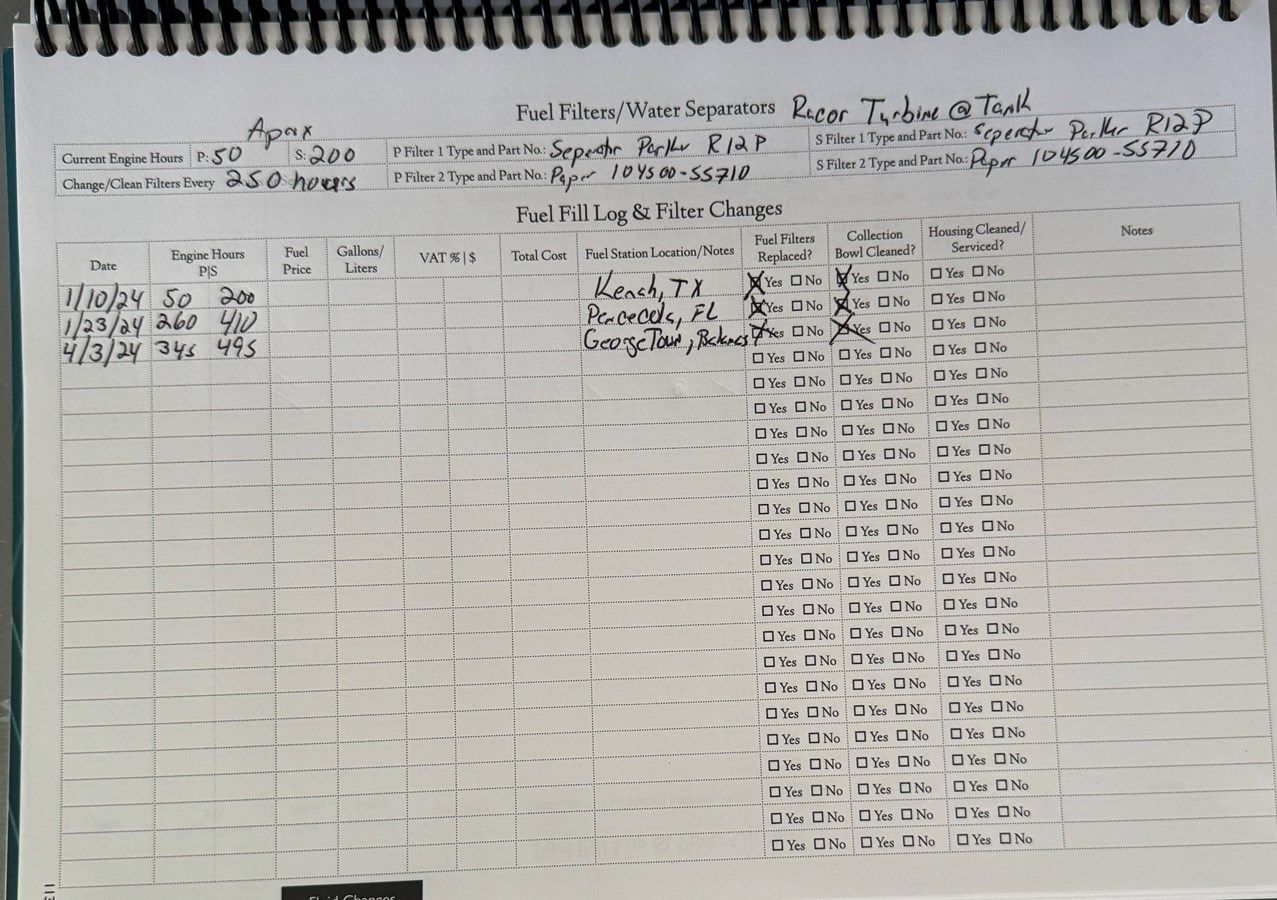 Fuel Filters/Water Separators Racor Turbine @ Tank
Aprx
Current Engine Hours P: 50 S: 200 P Filter 1 Type and Part No.: Seperator Parker R12P S Filter 1 Type and Part No.: Seperator Parker R12P
Change/Clean Filters Every 250 hours P Filter 2 Type and Part No.: Paper 104500-55710 S Filter 2 Type and Part No.: Paper 104500-55710
Fuel Fill Log & Filter Changes
Date Engine Hours P|S Fuel Price Gallons/ Liters VAT % | $ Total Cost Fuel Station Location/Notes Fuel Filters Replaced? Collection Bowl Cleaned? Housing Cleaned/ Serviced? Notes
1/10/24 50 200 Kemah, TX Yes No Yes No Yes No
1/23/24 260 410 FL Yes No Yes No Yes No
4/3/24 345 495 GeorgeTown, Yes No Yes No Yes No
Yes No Yes No Yes No
Yes No Yes No Yes No
Yes No Yes No Yes No
Yes No Yes No Yes No
Yes No Yes No Yes No
Yes No Yes No Yes No
Yes No Yes No Yes No
Yes No Yes No Yes No
Yes No Yes No Yes No
Yes No Yes No Yes No
Yes No Yes No Yes No
Yes No Yes No Yes No
Yes No Yes No Yes No
Yes No Yes No Yes No
Yes No Yes No Yes No
Yes No Yes No Yes No
Yes No Yes No Yes No
Yes No Yes No Yes No
Yes No Yes No Yes No
Yes No Yes No Yes No
113
Fluid Changes